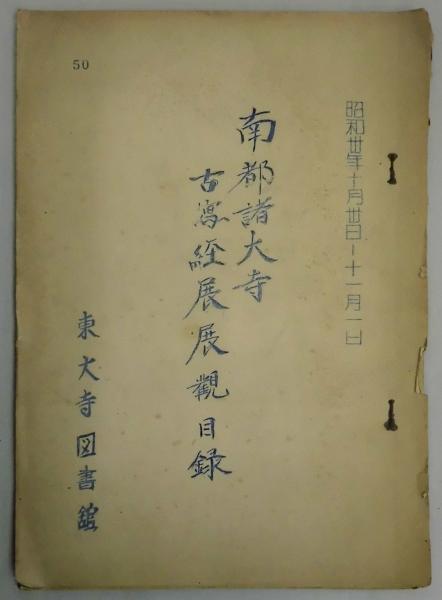 50
昭和卅年十月卅日-十一月一日
南都諸大寺
古寫經展展觀目録
東大寺図書舘